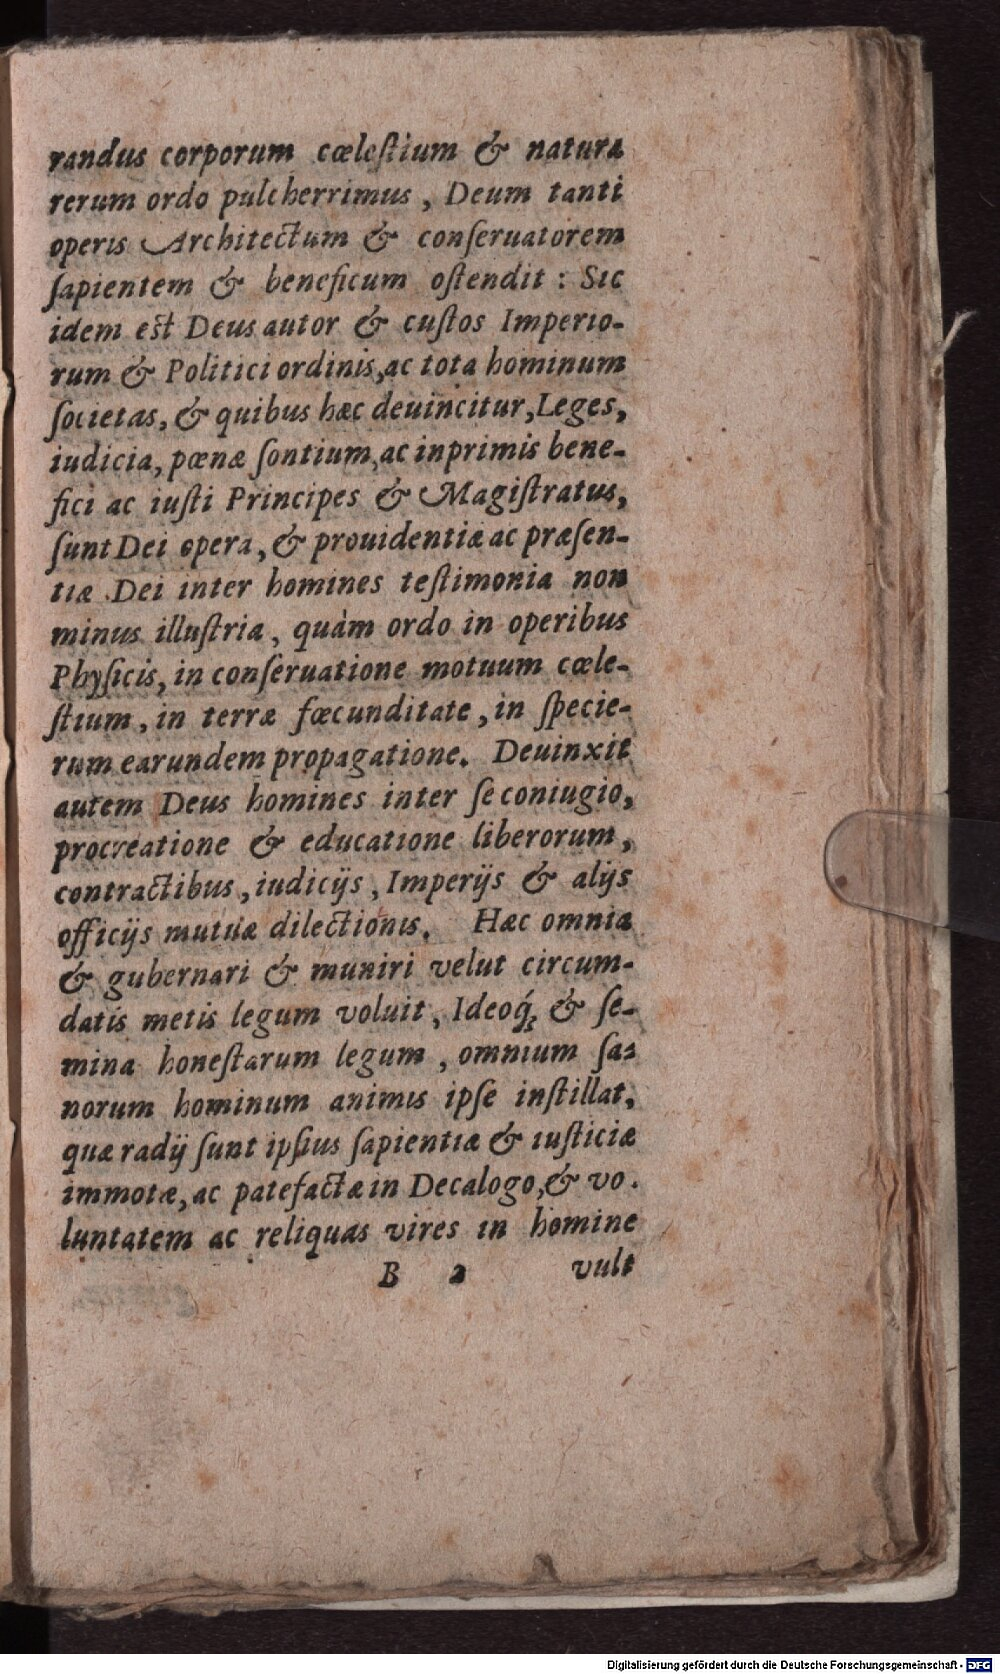 randus corporum cœleſtium & natura
rerum ordo pulcherrimus, Deum tanti
operis Architectum & conſeruatorem
ſapientem & beneficum oſtendit: Sic
idem eſt Deus autor & cuſtos Imperio-
rum & Politici ordinis, ac tota hominum
ſocietas, & quibus hæc deuincitur, Leges,
iudicia, pœnæ ſontium, ac inprimis bene-
fici ac iuſti Principes & Magiſtratus,
ſunt Dei opera, & prouidentiæ ac præſen-
tiæ Dei inter homines teſtimonia non
minus illuſtria, quàm ordo in operibus
Phyſicis, in conſeruatione motuum cœle-
ſtium, in terræ fœcunditate, in ſpecie-
rum earundem propagatione. Deuinxit
autem Deus homines inter ſe coniugio,
procreatione & educatione liberorum,
contractibus, iudicijs, Imperijs & alijs
officijs mutuæ dilectionis. Hæc omnia
& gubernari & muniri velut circum-
datis metis legum voluit, Ideoq́ꝫ & ſe-
mina honeſtarum legum, omnium ſa-
norum hominum animis ipſe inſtillat,
quæ radij ſunt ipſius ſapientiæ & iuſticiæ
immotæ, ac patefactæ in Decalogo, & vo-
luntatem ac reliquas vires in homine
B 2 vult
Digitalisierung gefördert durch die Deutsche Forschungsgemeinschaft - DFG